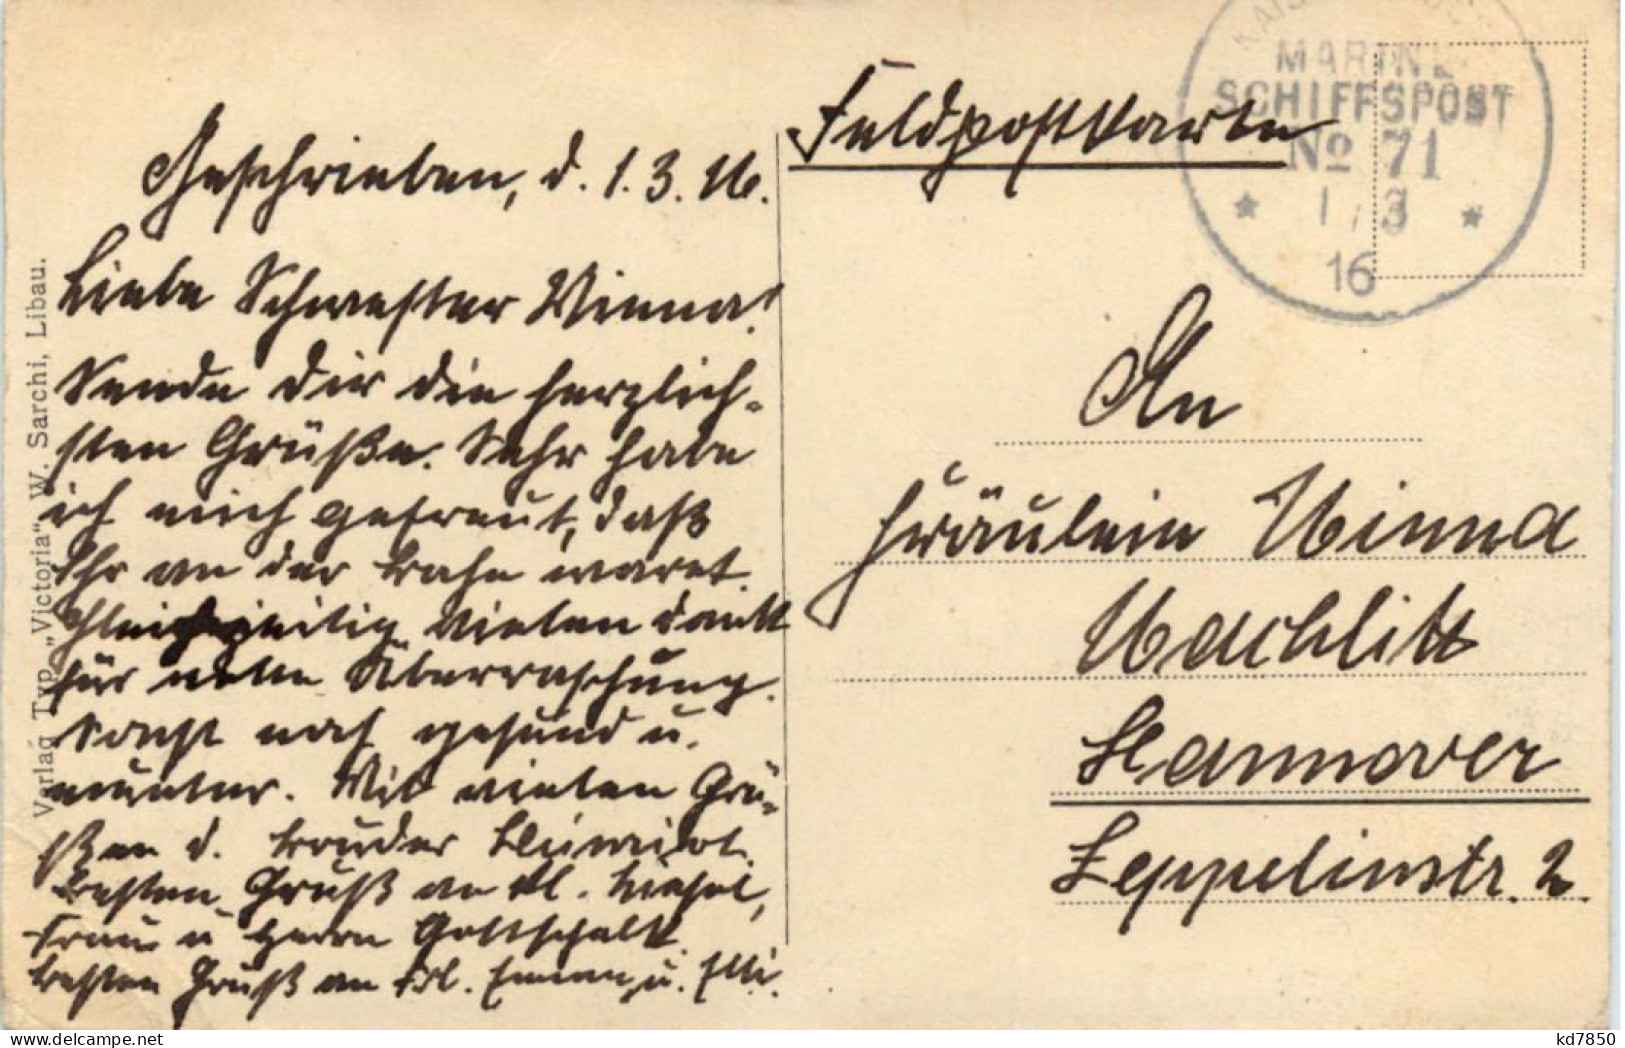 Feldpostkarte
MARINE
SCHIFFSPOST
No 71
* 1 / 3 *
16
Geschrieben, d. 1.3.16.
Liebe Schwester Minna!
Sende Dir die herzlich-
sten Grüße. Sehr habe
ich mich gefreut, daß
Ihr an der Bahn waret.
Gleichzeitig vielen Dank
für Überraschung.
Sonst noch gesund u.
munter. Mit vielen Grü-
ßen d. Bruder
Besten Gruß an
Frau u Herrn Gottschalk
Besten Gruß an Frl. Emma u. Elli.
An
Fräulein Minna
Machlitt
Hannover
Zeppelinstr. 2.
Verlag Typ. „Victoria“ W. Sarchi, Libau.
kd7850